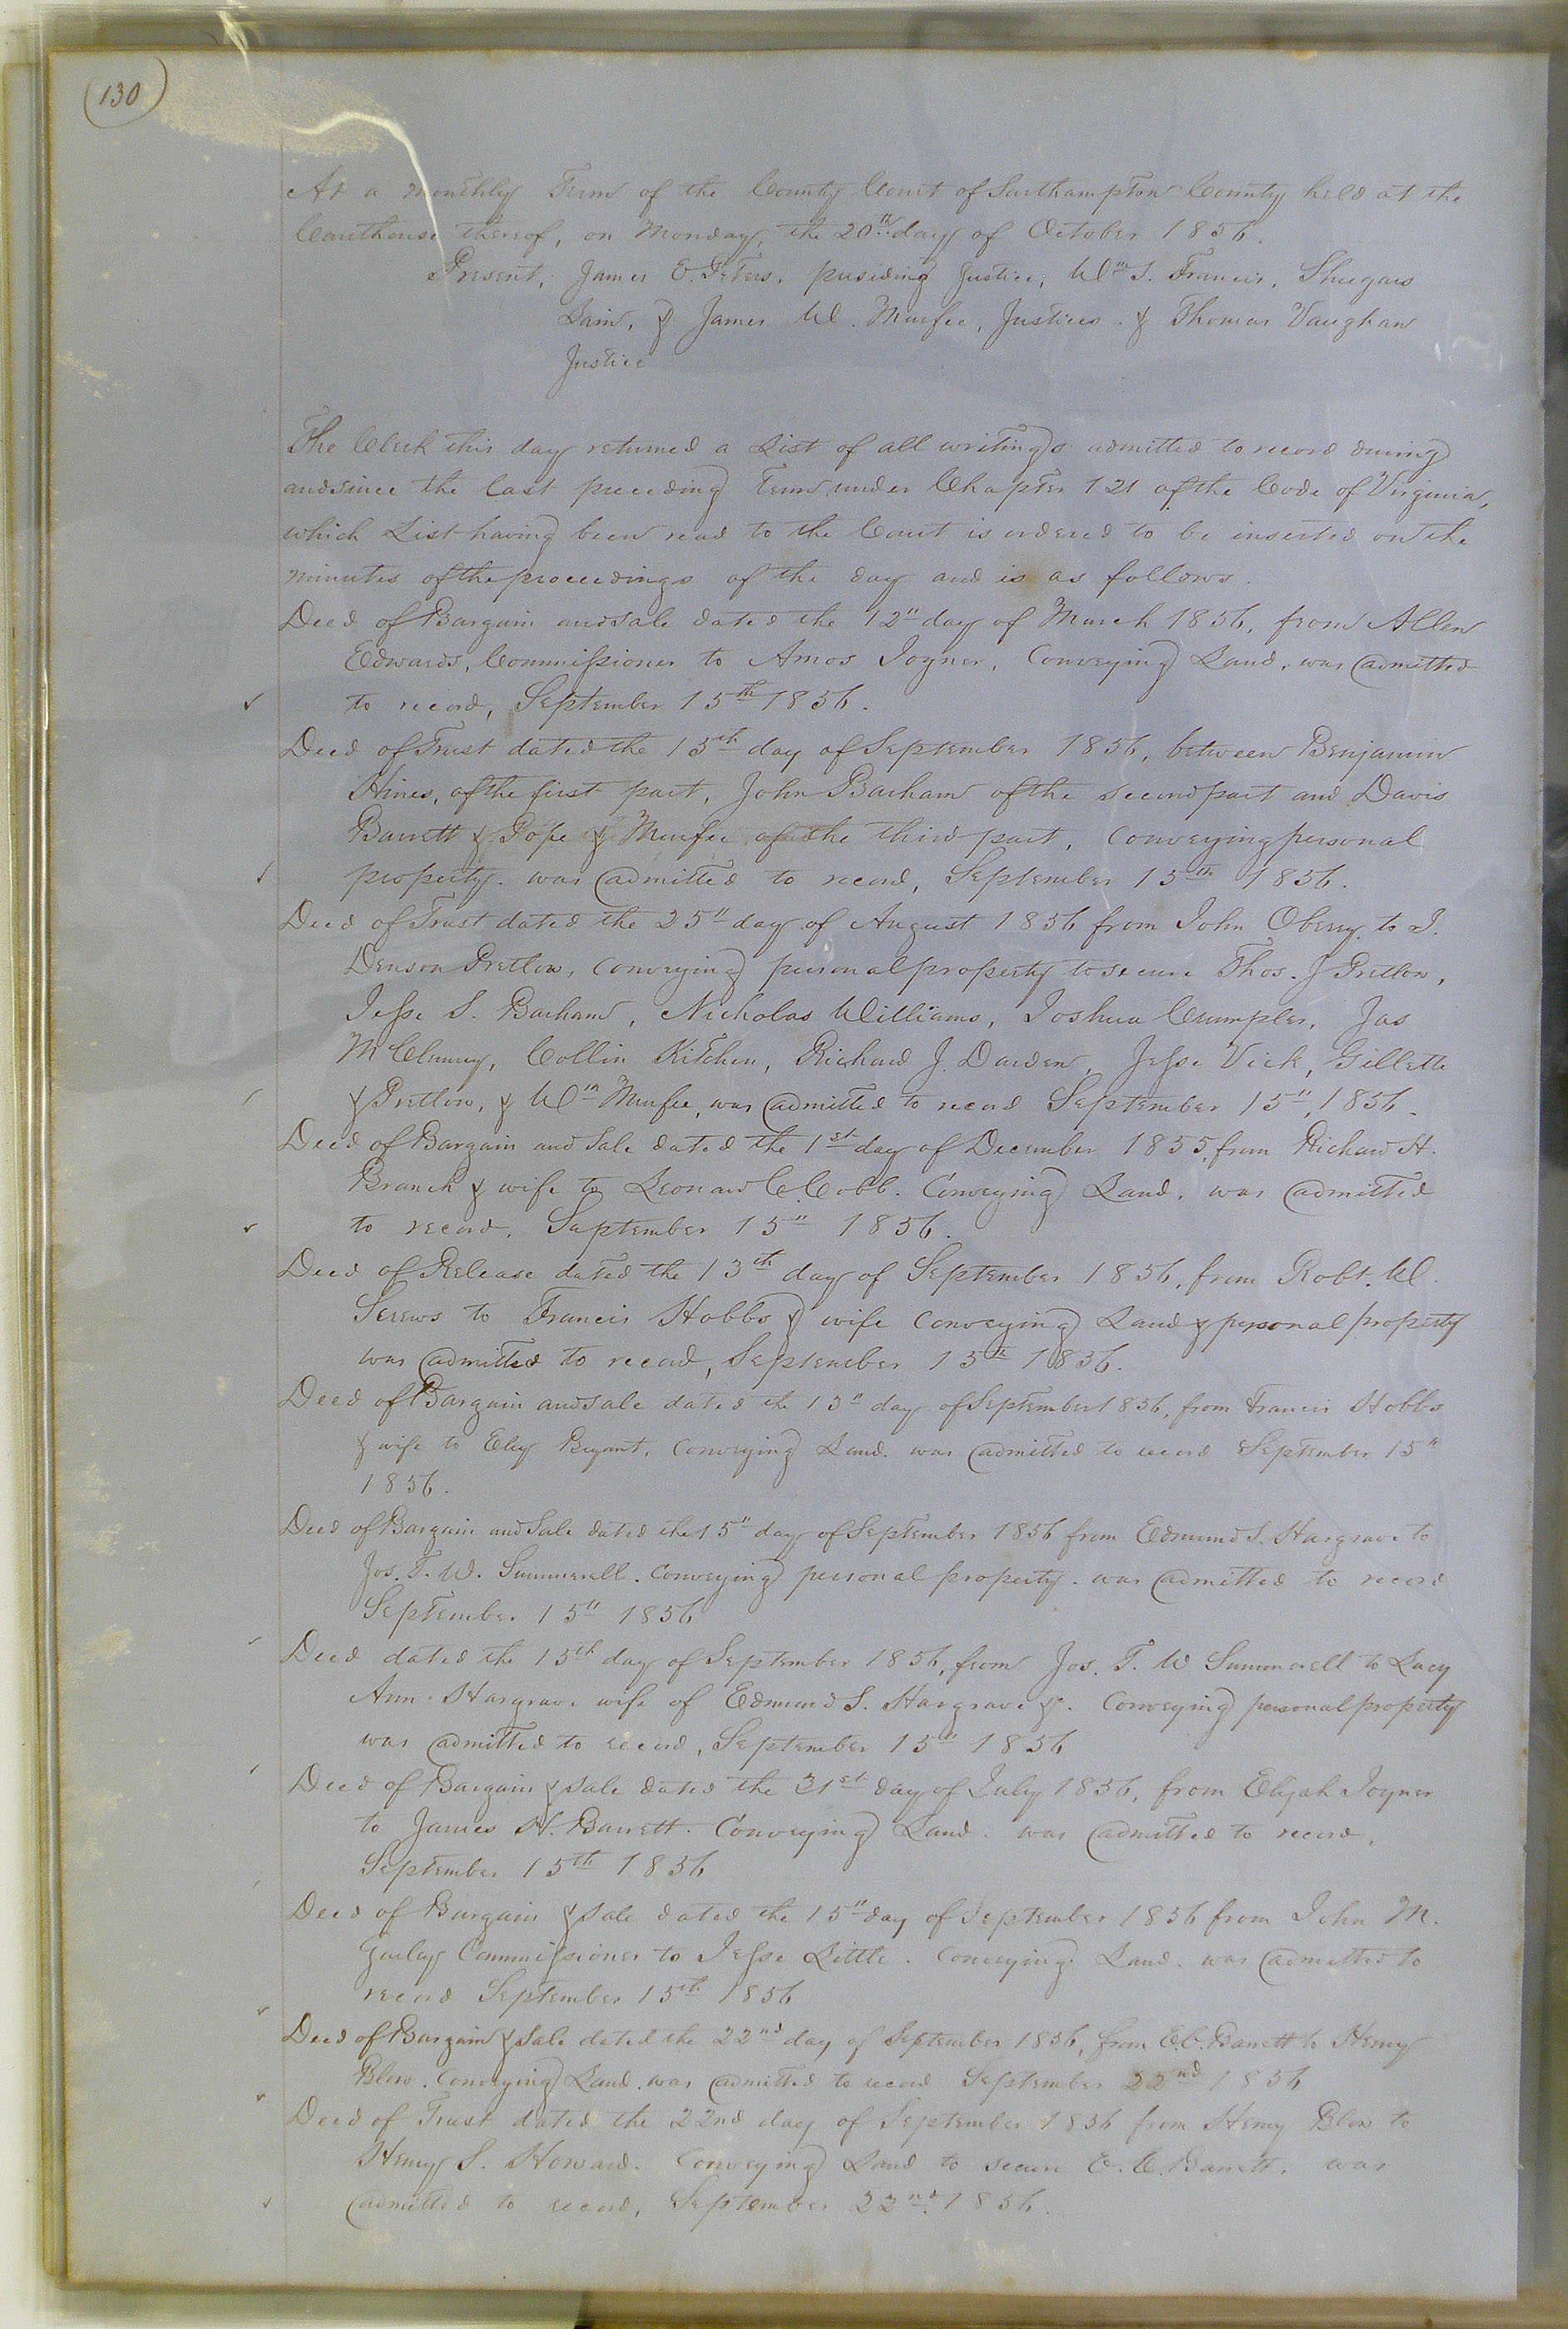 130
At a monthly Term of the County Court of Southampton County held at the
Courthouse thereof, on Monday, the 20th day of October 1856.
Present, James E. Peters, presiding Justice, Wm S. Francis, Shugars
Lain, & James W. Murfee, Justices. & Thomas Vaughan
Justice
The Clerk this day returned a List of all writings admitted to record during
and since the last preceding Term under Chapter 121 of the Code of Virginia,
which List having been read to the Court is ordered to be inserted on the
minutes of the proceedings of the day and is as follows.
Deed of Bargain and sale dated the 12" day of March 1856, from Allen
Edwards, Commissioner to Amos Joyner, Conveying Land, was admitted
to record, September 15th 1856.
Deed of Trust dated the 15th day of September 1856, between Benjamin
Hines, of the first part, John Barham of the second part and Davis
Barrett & Pope & Murfee of the third part, Conveying personal
property. was admitted to record, September 15th 1856.
Deed of Trust dated the 25" day of August 1856 from John Oberry to J.
Denson Pretlow, Conveying personal property to secure Thos. J Pretlow,
Jesse S. Barham, Nicholas Williams, Joshua Crumpler, Jas
McClenny, Collin Kitchen, Richard J. Darden, Jesse Vick, Gillette
& Pretlow, & Wm Murfee, was admitted to record September 15", 1856.
Deed of Bargain and Sale dated the 1st day of December 1855, from Richard H.
Branch & wife to Leonard C. Cobb. Conveying Land, was admitted
to record, September 15" 1856.
Deed of Release dated the 13th day of September 1856, from Robt. W.
Screws to Francis Hobbs & wife Conveying Land & personal property
was admitted to record, September 15th 1856.
Deed of Bargain and sale dated the 13" day of September 1856, from Francis Hobbs
& wife to Eley Bryant, Conveying Land. was admitted to record September 15"
1856.
Deed of Bargain and Sale dated the 15" day of September 1856 from Edmund S. Hargrave to
Jos. T. W. Summerell. Conveying personal property. was admitted to record
September 15" 1856
Deed dated the 15th day of September 1856, from Jos. T. W Summerell to Lucy
Ann Hargrave wife of Edmund S. Hargrave &c. Conveying personal property
was admitted to record, September 15" 1856
Deed of Bargain & sale dated the 31st day of July 1856, from Elijah Joyner
to James H. Barrett. Conveying Land. was admitted to record,
September 15th 1856
Deed of Bargain & sale dated the 15" day of September 1856 from John M.
Gurley Commissioner to Jesse Little. Conveying Land. was admitted to
record September 15th 1856
Deed of Bargain & Sale dated the 22nd day of September 1856, from E. C. Barrett to Henry
Blow. Conveying Land. was admitted to record September 22nd 1856
Deed of Trust dated the 22nd day of September 1856 from Henry Blow to
Henry S. Howard. Conveying Land to secure E. C. Barrett. was
admitted to record, September 22nd 1856.